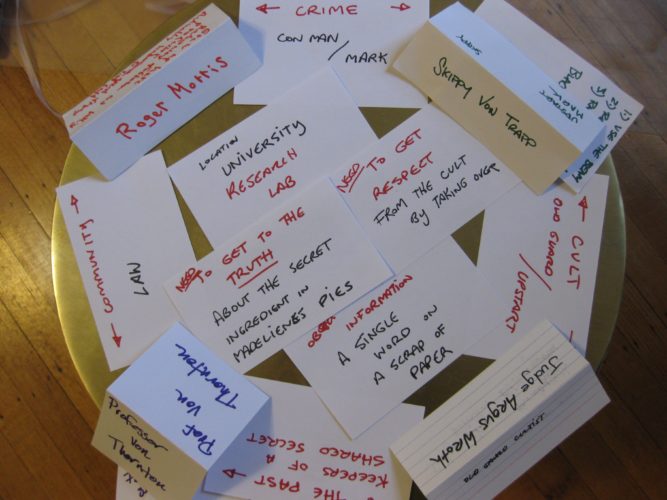 CRIME
CON MAN
/
MARK
Roger Mortis
SKIPPY VON TRAPP
1) USE THE BEAM
LOCATION
UNIVERSITY
RESEARCH
LAB
NEED TO GET
RESPECT
FROM THE CULT
BY TAKING OVER
COMMUNITY
LAW
NEED TO GET TO THE
TRUTH
ABOUT THE SECRET
INGREDIENT IN
MADELIENES PIES
CULT
OLD GUARD/
UPSTART
INFORMATION
A SINGLE
WORD ON
A SCRAP OF
PAPER
Prof Von
Thornton
Professor
Von
Thornton
THE PAST
KEEPERS OF A
SHARED SECRET
Judge Argus Wroth
OLD GUARD CULTIST